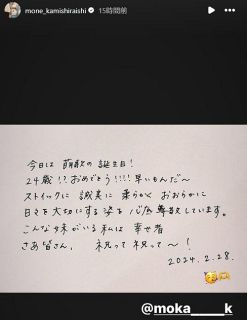 mone_kamishiraishi 15時間前
今日は 萌歌の誕生日!
24歳!? おめでとう!!!! 早いもんだ〜
ストイックに 誠実に 柔らかく おおらかに
日々を大切にする姿を 心底 尊敬しています。
こんな妹がいる私は 幸せ者
さあ皆さん、 祝って祝って〜!
2024.2.28.
@moka_____k